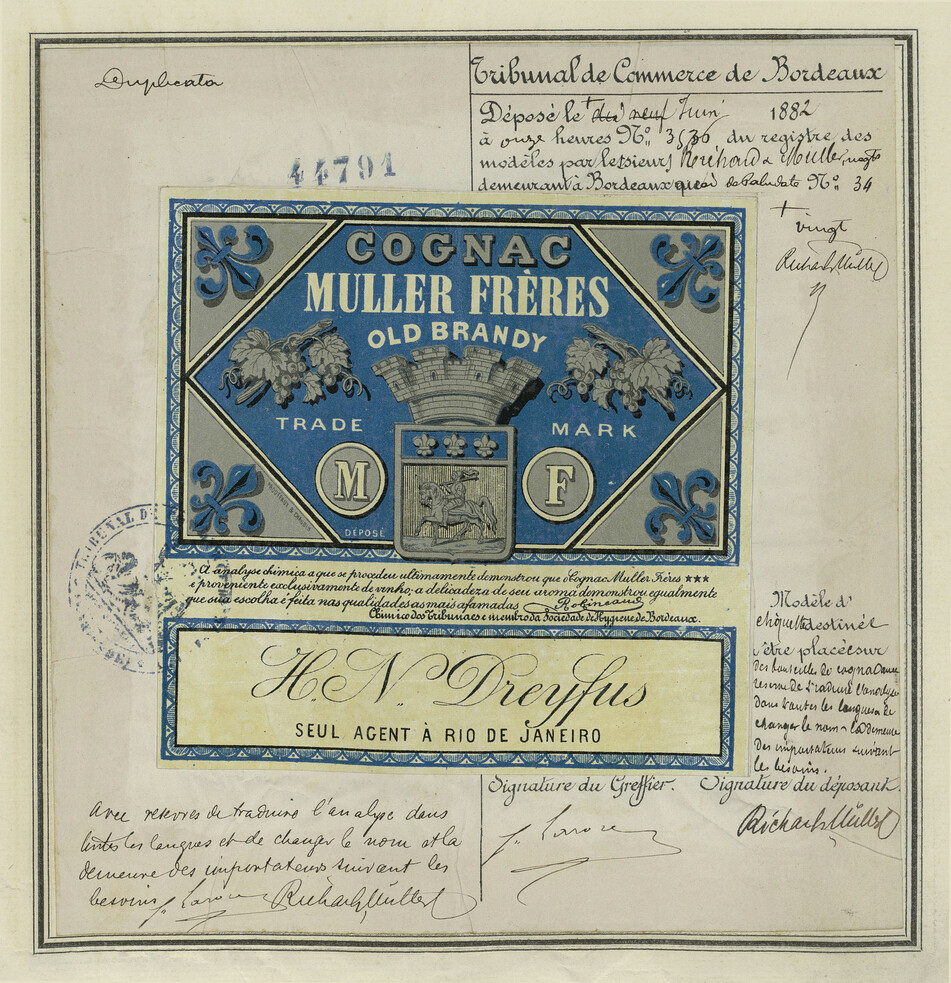 Duplicata
Tribunal de Commerce de Bordeaux
Déposé le neuf Juin 1882
à onze heures No. 3536 du registre des
modèles par les sieurs Richard & Muller, vingt
demeurant à Bordeaux quai de Paludate No. 34
44791
+
vingt
Richard & Müller
COGNAC
MULLER FRÈRES
OLD BRANDY
TRADE MARK
M F
DÉPOSÉ
A analyse chimica a que se procedeu ultimamente demonstrou que Cognac Muller Frères ***
é proveniente exclusivamente de vinho; a delicadeza de seu aroma demonstrou egualmente
que sua escolha é feita nas qualidades as mais afamadas
Robineaud
Chimico dos Tribunaes e membro da Sociedade de Hygiene de Bordeaux.
H. N. Dreyfus
SEUL AGENT À RIO DE JANEIRO
TRIBUNAL D
Modèle d'
étiquette destinée
à être placée sur
des bouteilles de cognac avec
réserve de traduire l'analyse
dans toutes les langues et de
changer le nom & la demeure
des importateurs suivant
les besoins.
Signature du Greffier. Signature du déposant.
Richard & Müller
Avec réserves de traduire l'analyse dans
toutes les langues et de changer le nom et la
demeure des importateurs suivant les
besoins
Richard & Müller